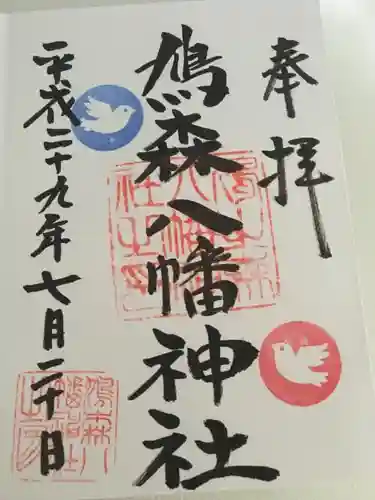 奉拝
鳩森八幡神社
平成二十九年七月二十日